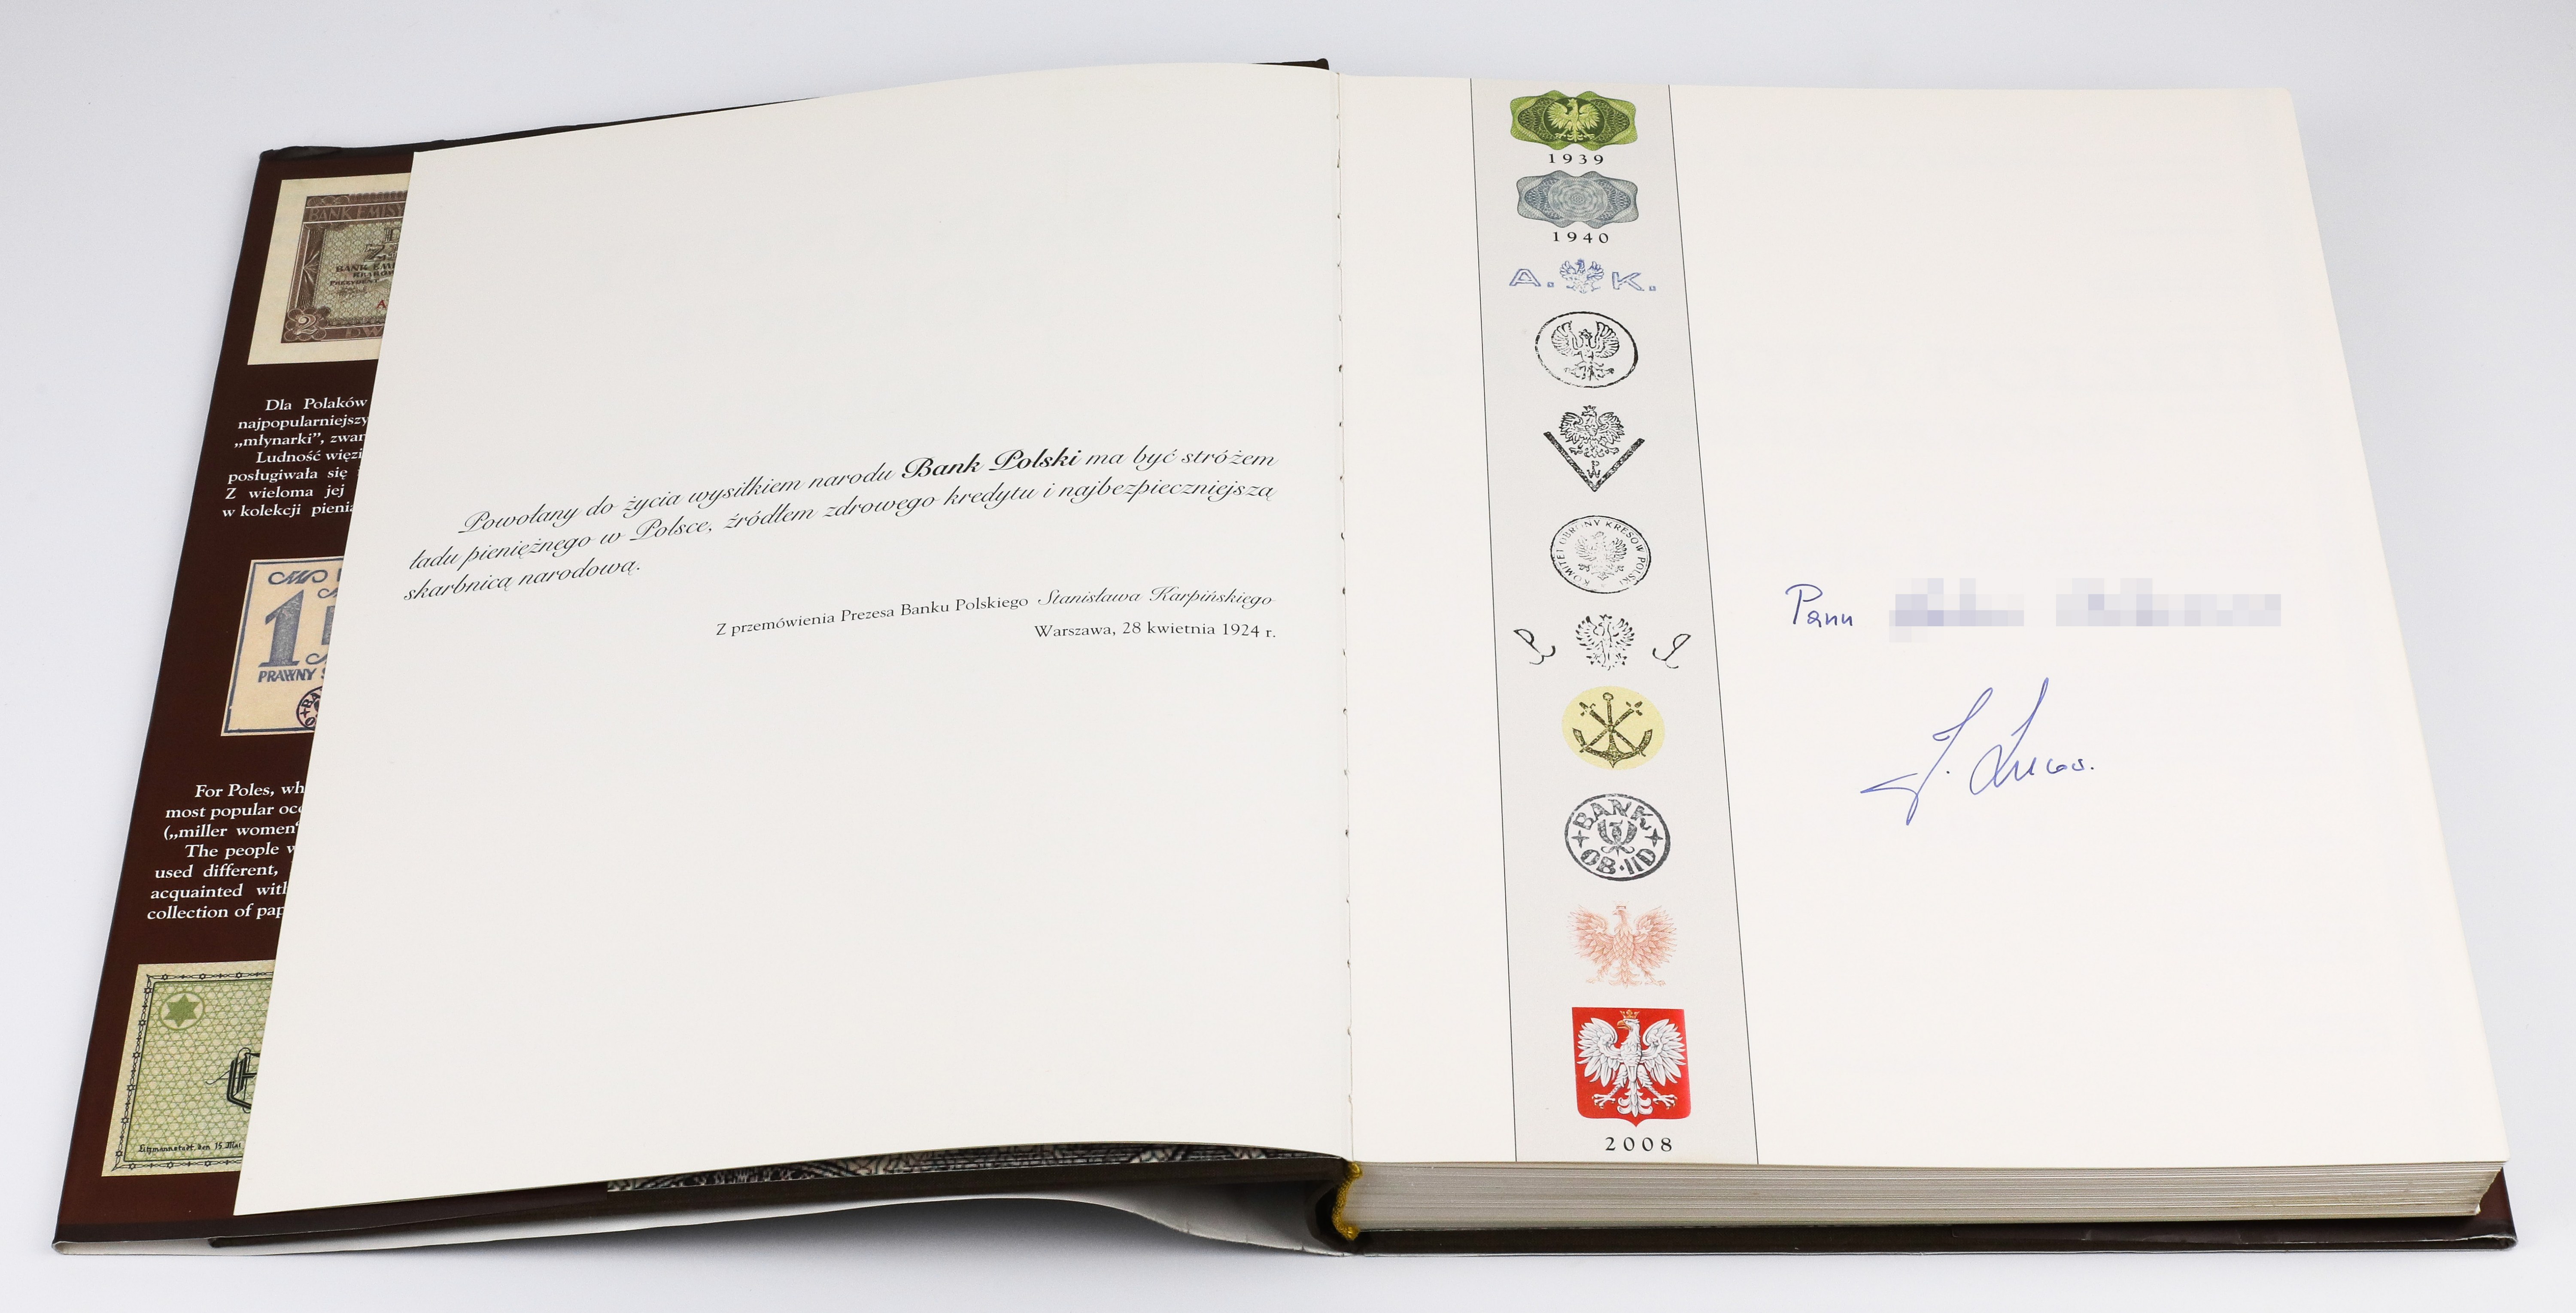 BANK EMISY
BANK EMI
KRAKÓW
PREZYDENT
A
2
Dla Polaków
najpopularniejszy
„młynarki”, zwan
Ludność więzi
posługiwała się
Z wieloma jej
w kolekcji pienią
1
PRAWNY
For Poles, wh
most popular occ
(„miller women“
The people w
used different,
acquainted with
collection of pap
Litzmannstadt, den 15. Mai
Powołany do życia wysiłkiem narodu Bank Polski ma być stróżem
ładu pieniężnego w Polsce, źródłem zdrowego kredytu i najbezpieczniejszą
skarbnicą narodową.
Z przemówienia Prezesa Banku Polskiego Stanisława Karpińskiego
Warszawa, 28 kwietnia 1924 r.
1939
1940
A. K.
PW
KOMITET OBRONY KRESÓW POLSKI
BANK
OB·IID
2008
Panu
J. Lucas.